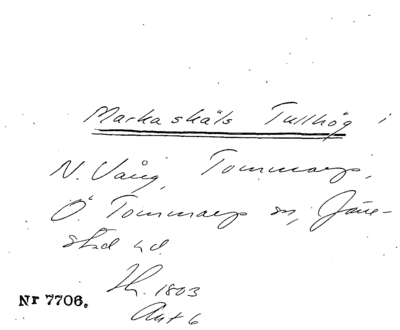 Markaskäls Tullhög i
N. Vång, Tommarps,
Ö. Tommarps sn, Järe-
stad hd.
Th. 1803
Ant 6
Nr 7706.